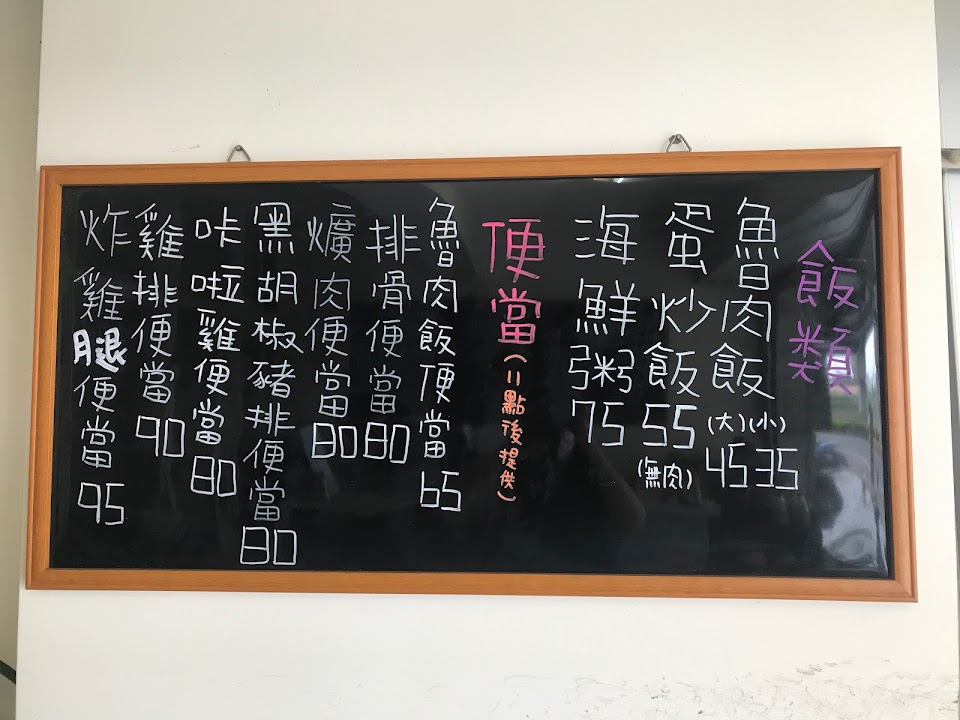 飯類
魯肉飯
(大)(小)
45 35
蛋炒飯 55
(無肉)
海鮮粥 75
便當(11點後提供)
魯肉飯便當 65
排骨便當 80
爌肉便當 80
黑胡椒豬排便當 80
咔啦雞便當 80
雞排便當 90
炸雞腿便當 95